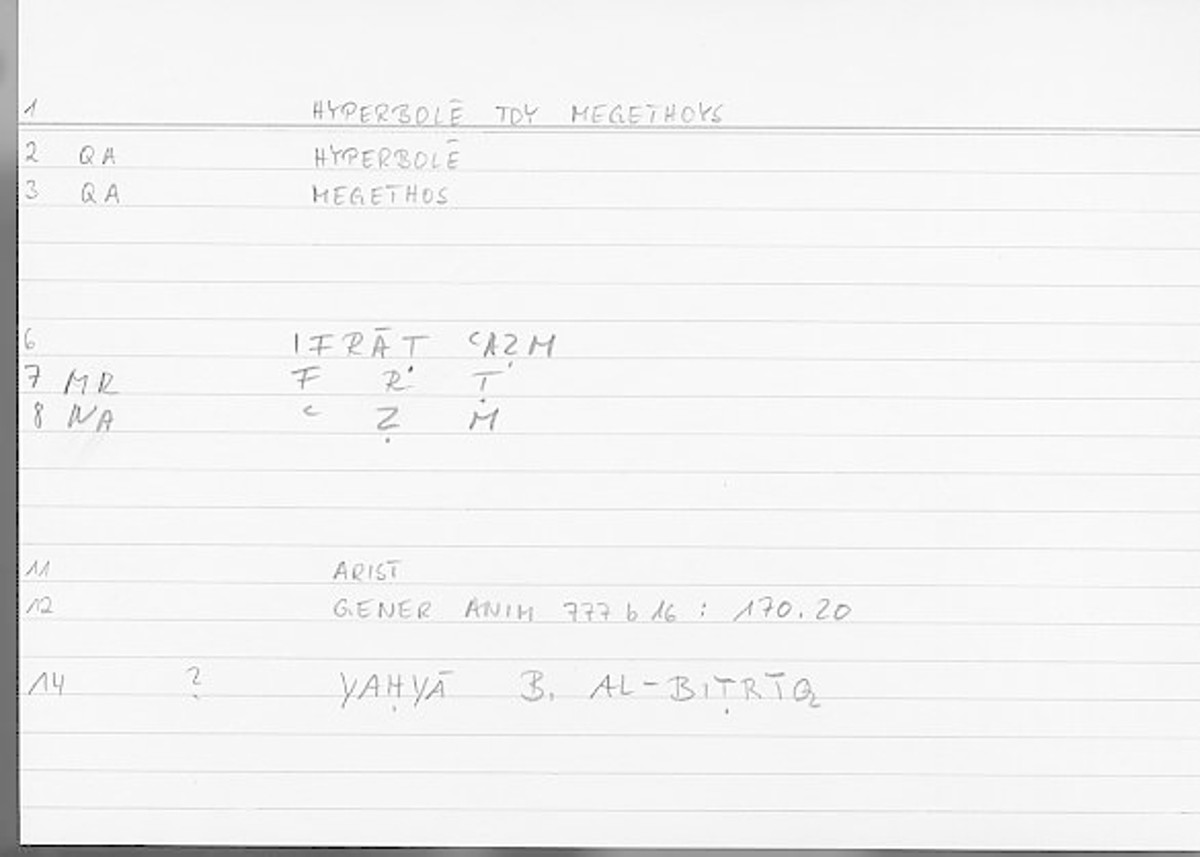 1 HYPERBOLĒ TOY MEGETHOYS
2 QA HYPERBOLĒ
3 QA MEGETHOS
6 IFRĀT ʿAẒM
7 MR F R Ṭ
8 NA ʿ Ẓ M
11 ARIST
12 GENER ANIM 777 b 16 : 170.20
14 ? YAḤYĀ B. AL-BIṬRĪQ